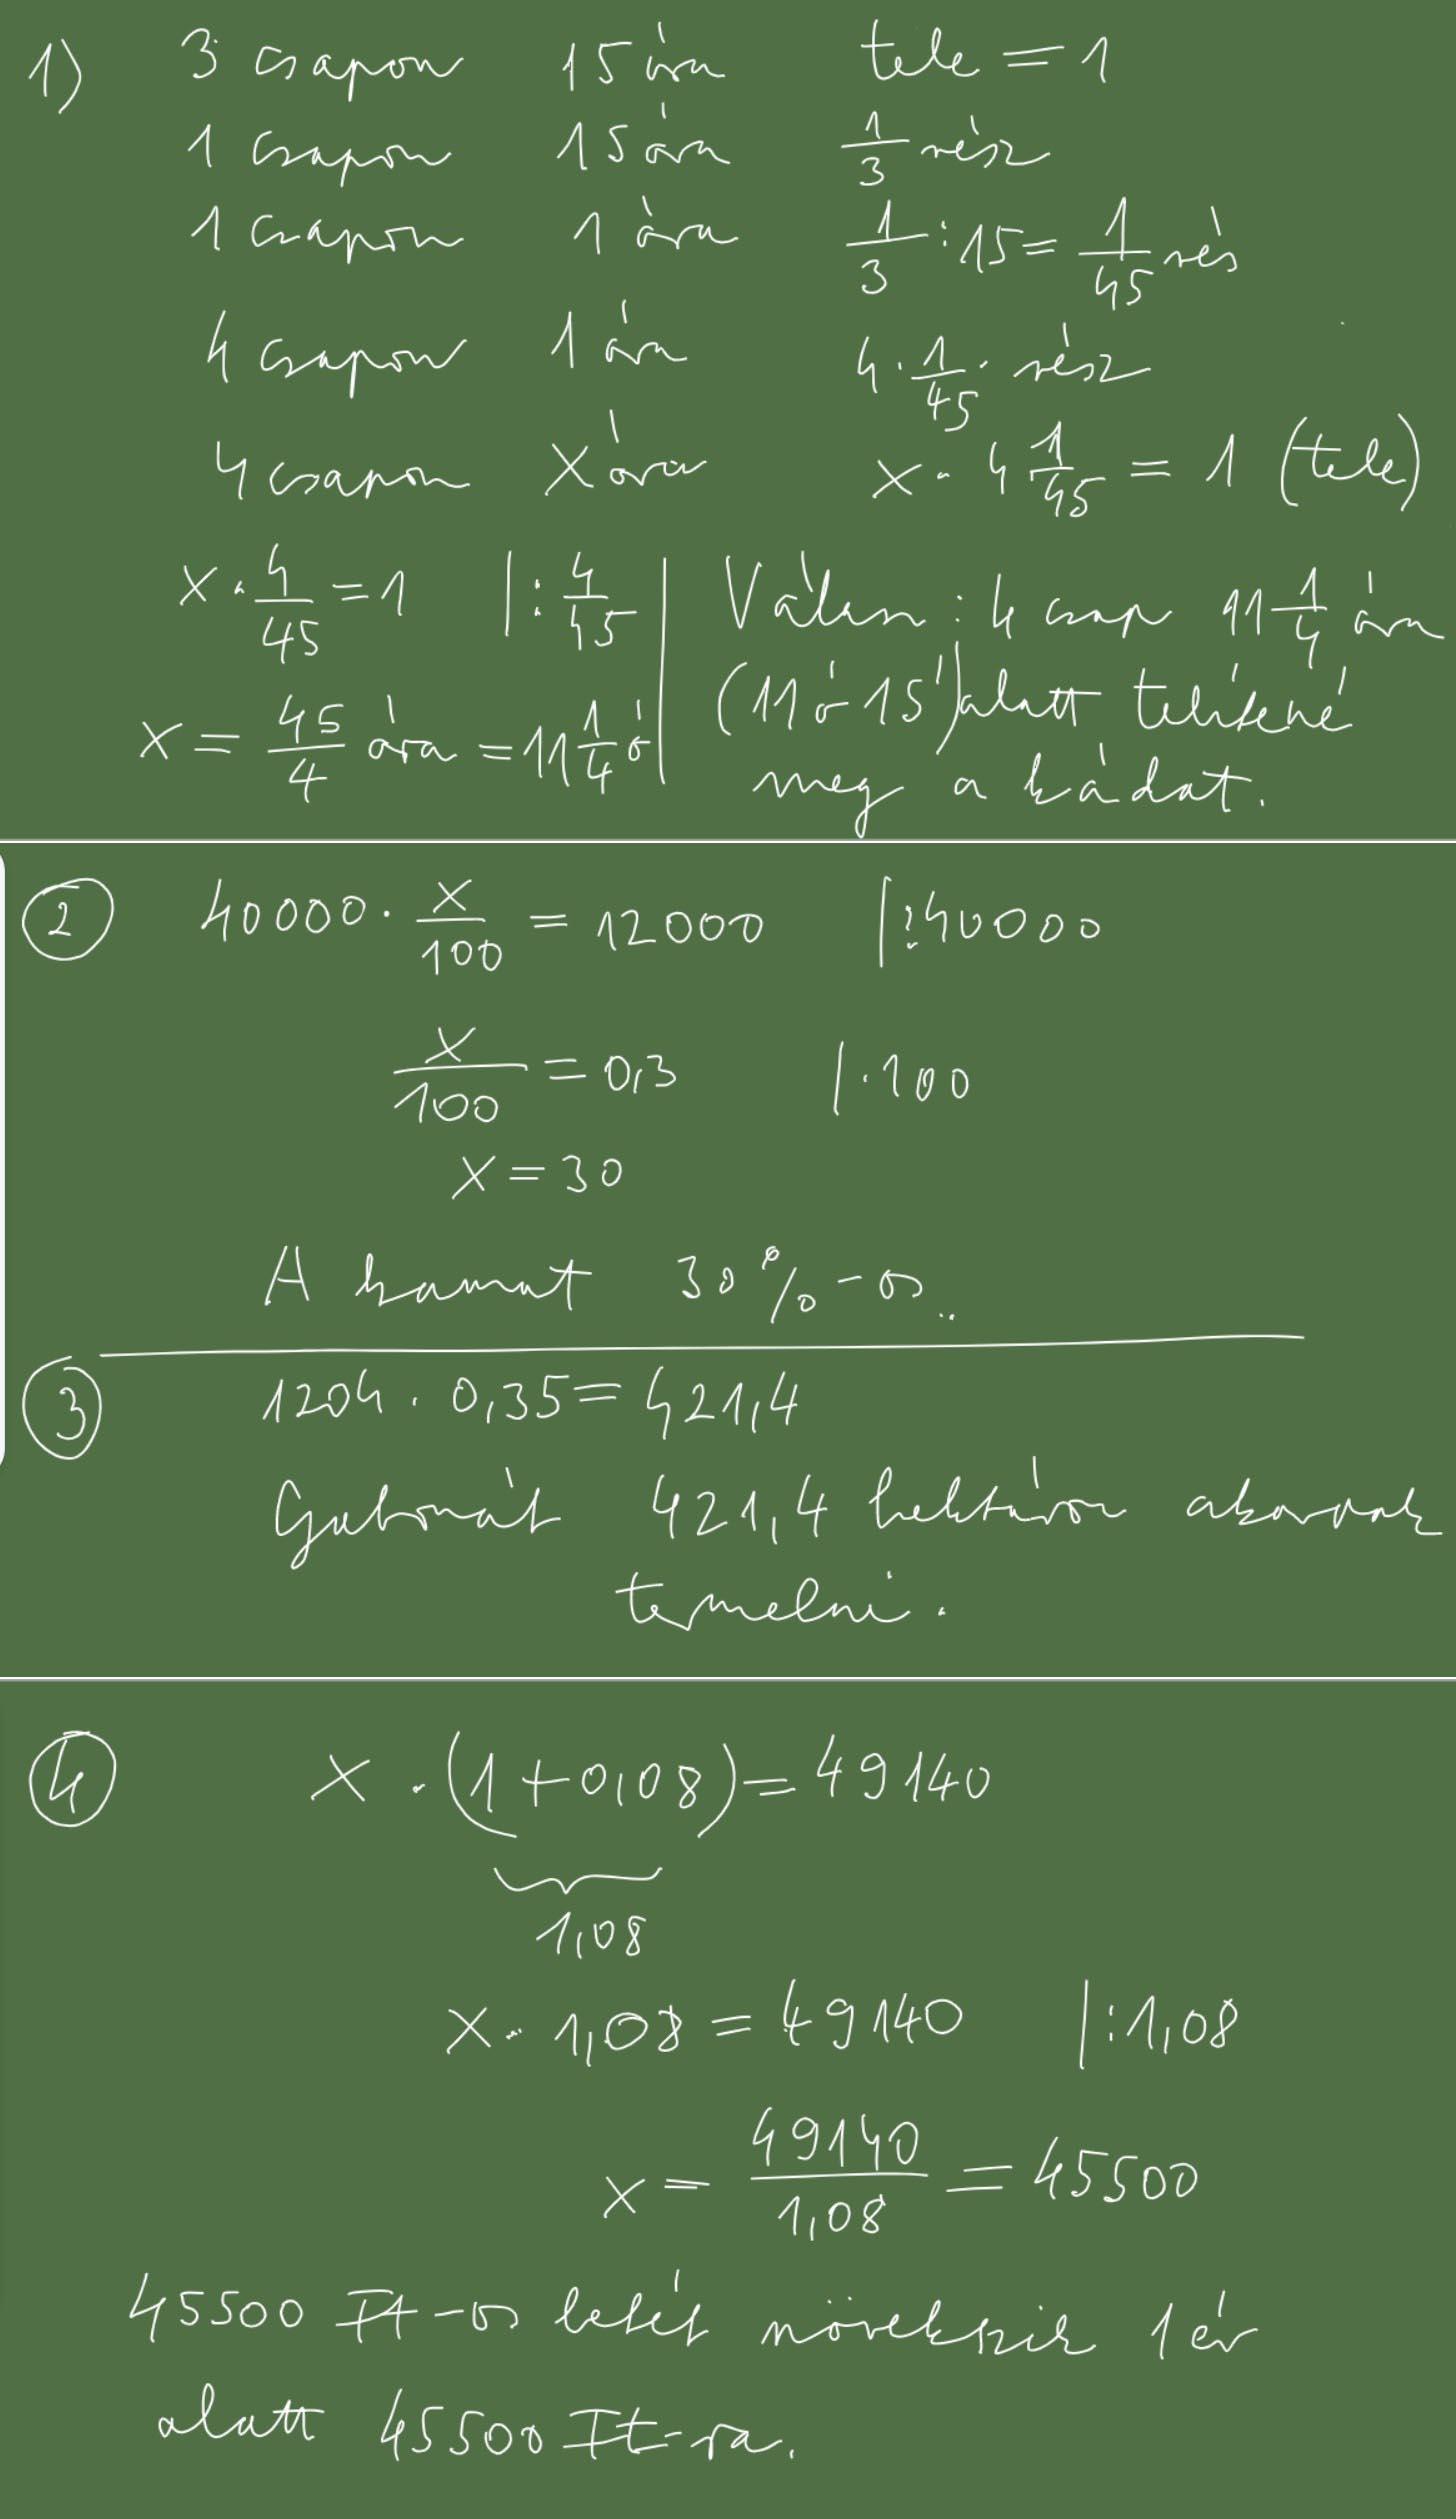 1) 3 csapon 15 óra tele = 1
1 csapon 15 óra 1/3 rész
1 csapon 1 óra 1/3 : 15 = 1/45 rész
4 csapon 1 óra 4 · 1/45 · rész
4 csapon x óra x · 4 1/45 = 1 (tele)
x · 4/45 = 1 | : 4/45
x = 45/4 óra = 11 1/4 ó
Válasz : 4 csap 11 1/4 óra
(11 ó 15') alatt telítené
meg a kádat.
② 40000 · x/100 = 12000 | : 40000
x/100 = 0,3 | · 100
x = 30
A kamat 30%-os.
③ 1204 · 0,35 = 421,4
Gabonát 421,4 hektáron akarnak
termelni.
④ x · (1 + 0,08) = 49140
1,08
x · 1,08 = 49140 | : 1,08
x = 49140/1,08 = 45500
45500 Ft-os betét növekszik 1 év
alatt 45500 Ft-ra.